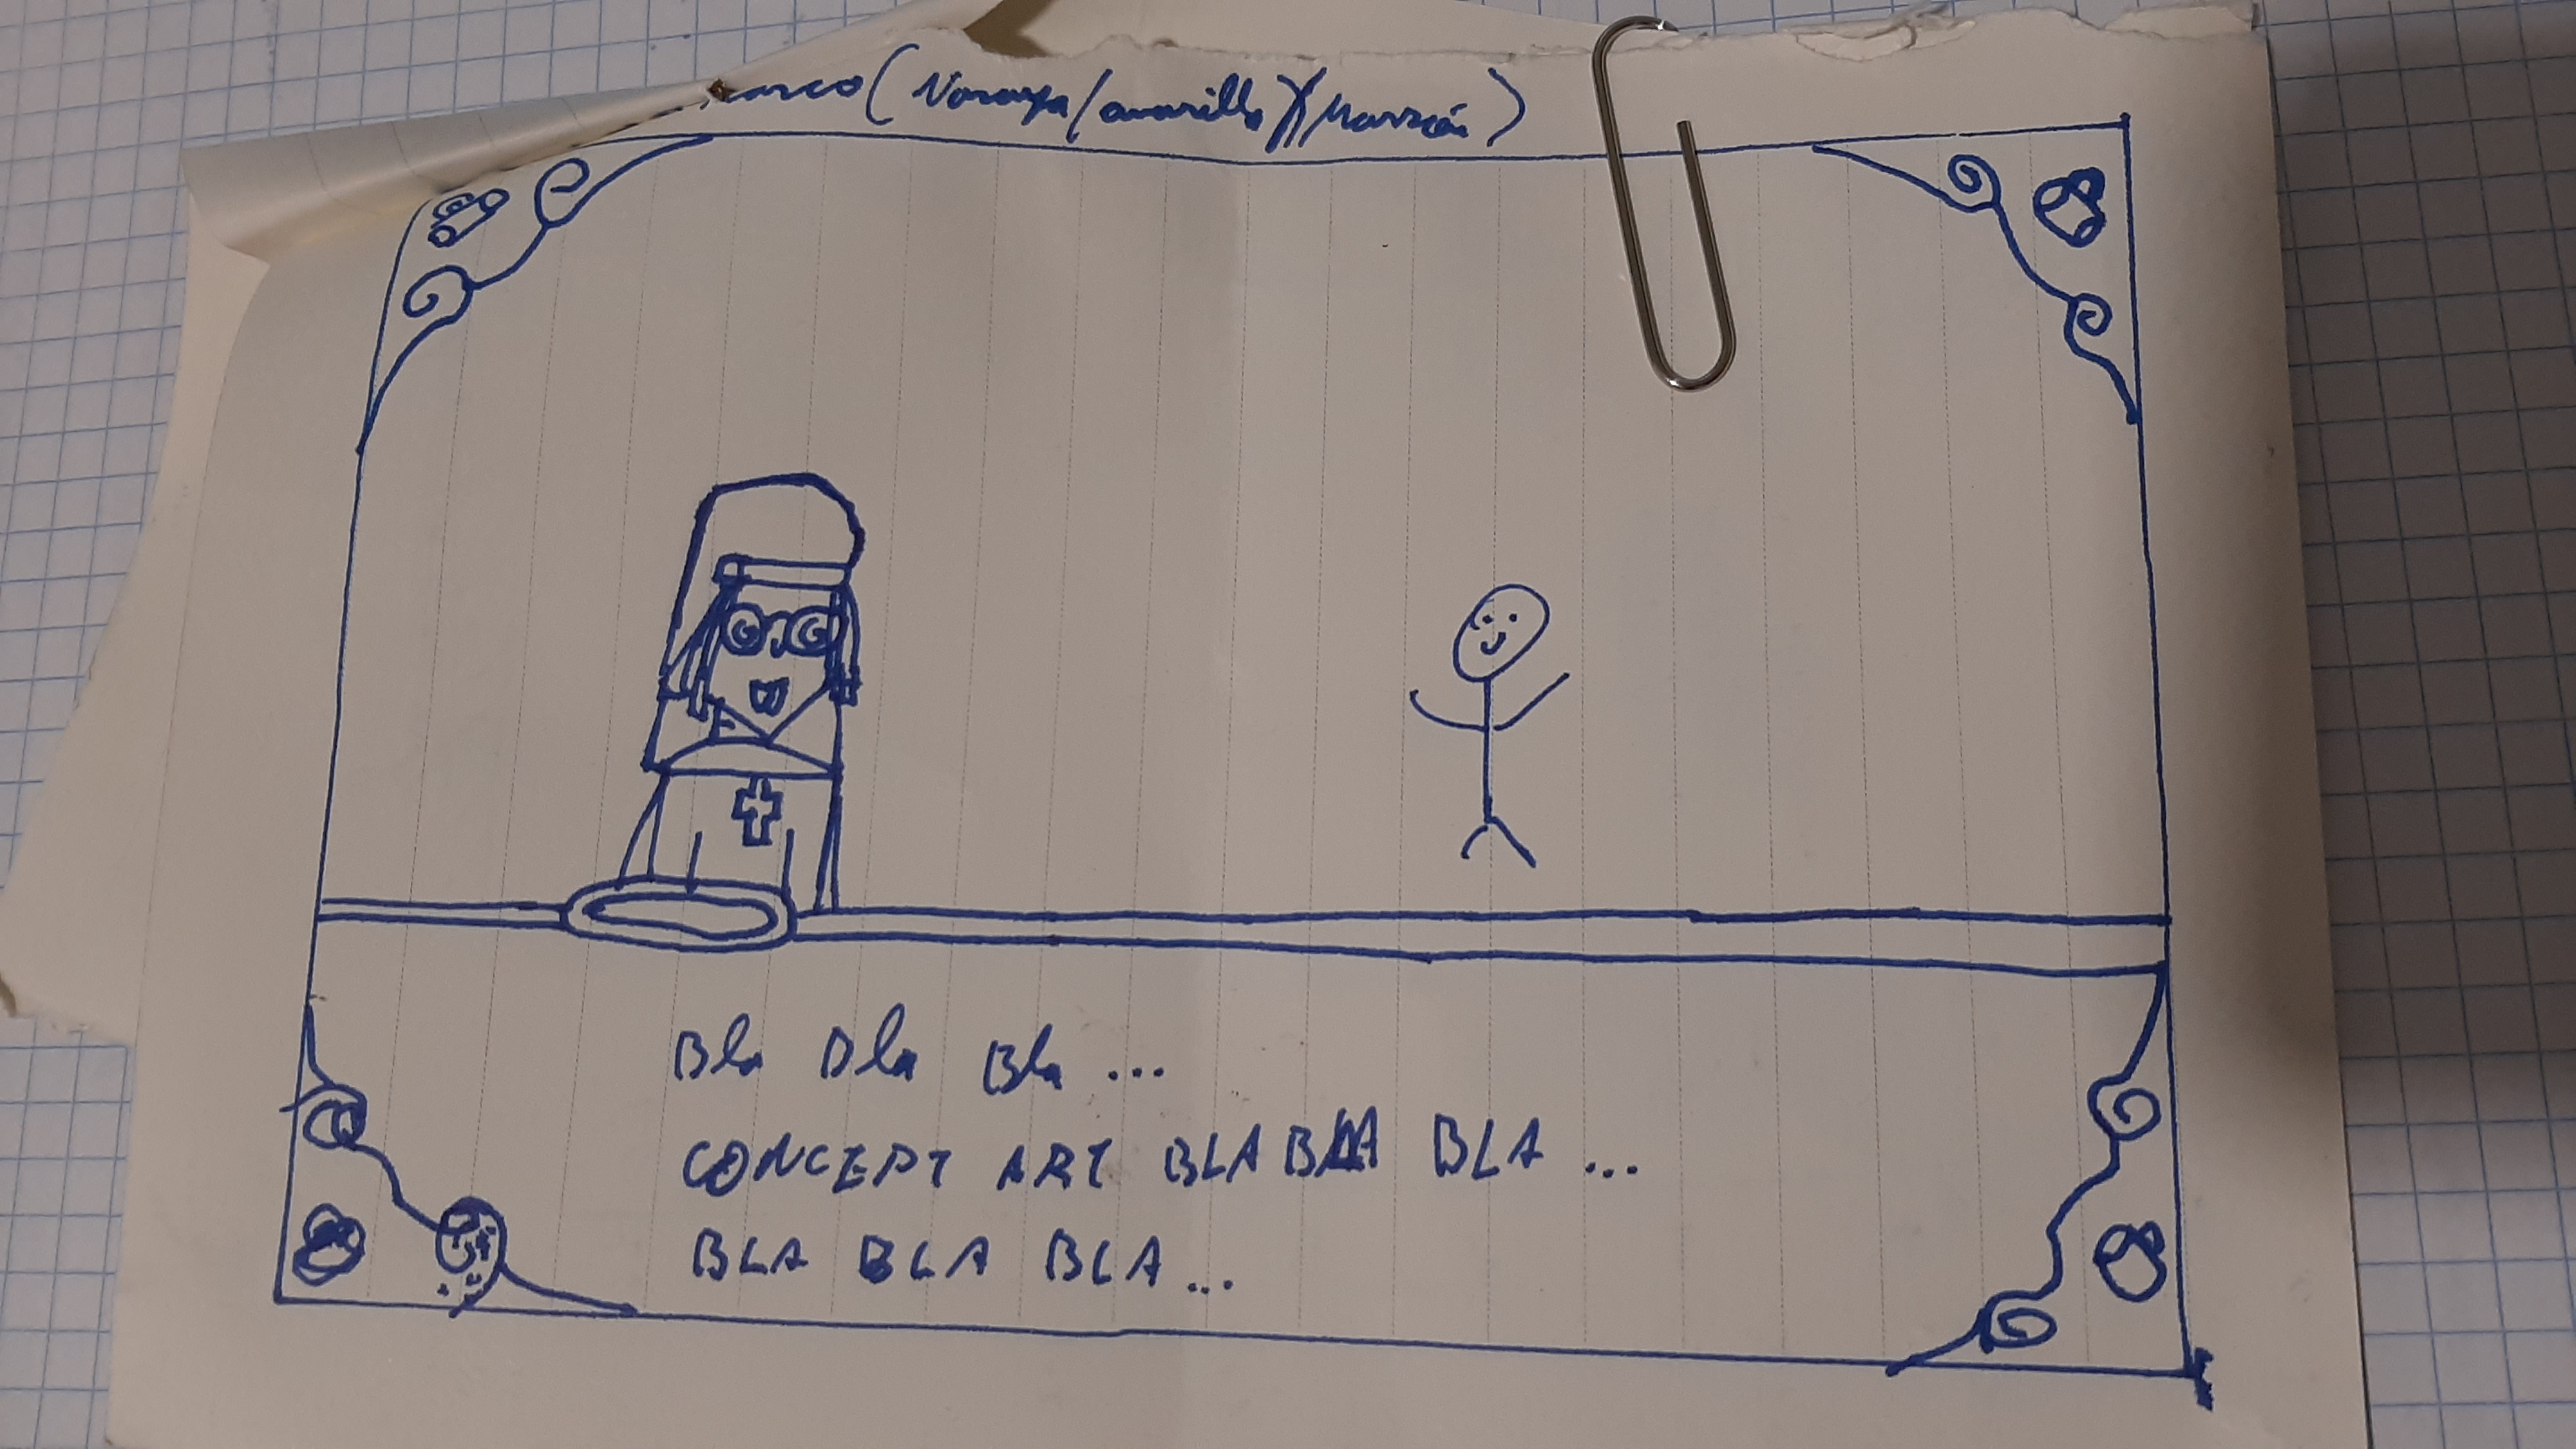 Marco (Naranja/amarillo)(Marrón)
Bla Bla Bla ...
CONCEPT ART BLA BLA BLA ...
BLA BLA BLA ...